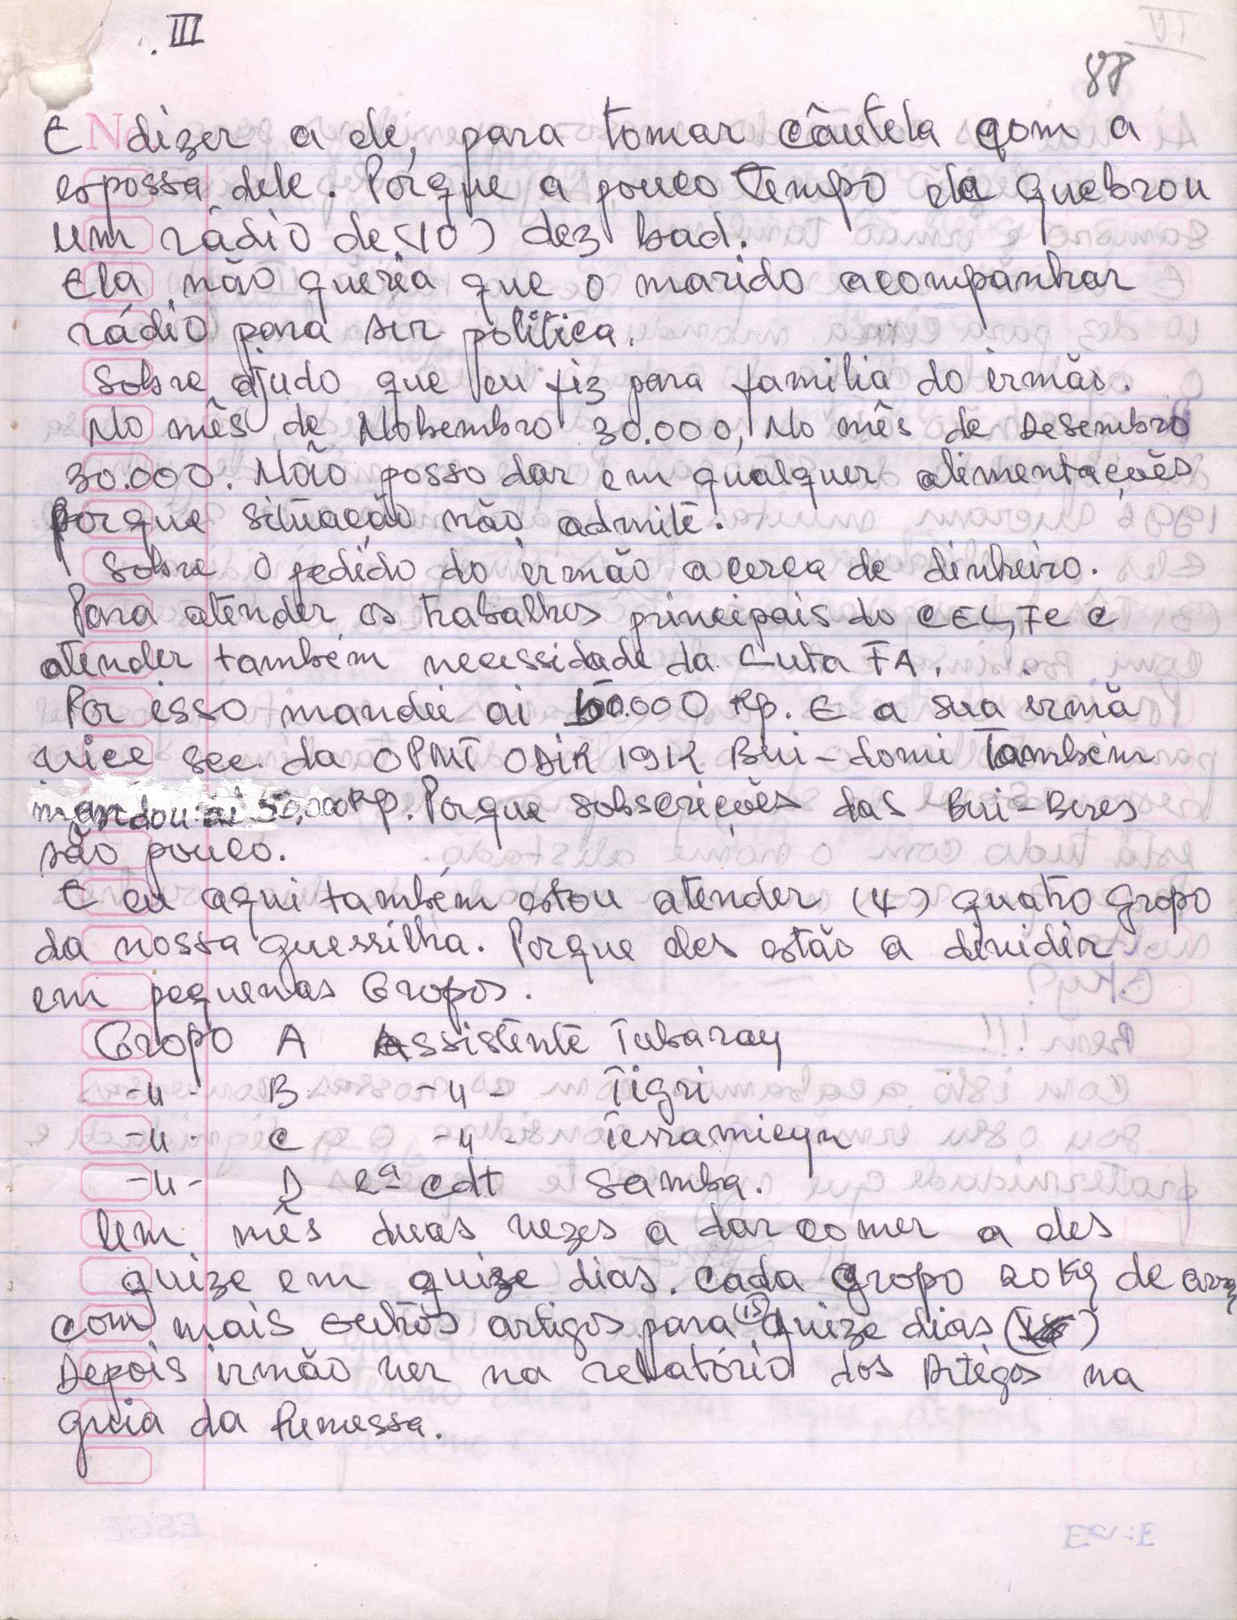 III
88
E dizer a ele, para tomar câutela qom a
espossa dele. Porque a pouco Tempo ela quebrou
um rádio de (10) dez bad.
Ela não queria que o marido acompanhar
rádio para ser politica.
Sobre ajudo que eu fiz para familia do irmão.
No mês de Nobembro 30.000, No mês de Desembro
30.000. Não posso dar em qualquer alimentações
porque situação não admite.
Sobre o pedido do irmão acerca de dinheiro.
Para atender os trabalhos principais do CEL, Fe e
atender também necessidade da Luta FA.
Por isso mandei ai 50.000 Rp. E a sua irmã
vice sec. da OPMT ODIR 19K Bui-domi Também
mandou ai 50,000 Rp. Porque sobscrições das Bui-Beres
são pouco.
E eu aqui também estou atender (4) quatro gropo
da nossa guessilha. Porque eles estão a dividir
em pequenas Gropos.
Gropo A Assistente Tubaray
-u- B -u- Tigri
-u- C -u- Terramicyn
-u- D 2ª cdt Samba.
Um mês duas vezes a dar comer a eles
quize em quize dias. Cada gropo 20 Kg de arroz
com mais outros artigos para (15) quize dias
Depois irmão ver na rellatório dos Artigos na
guia da Remessa.